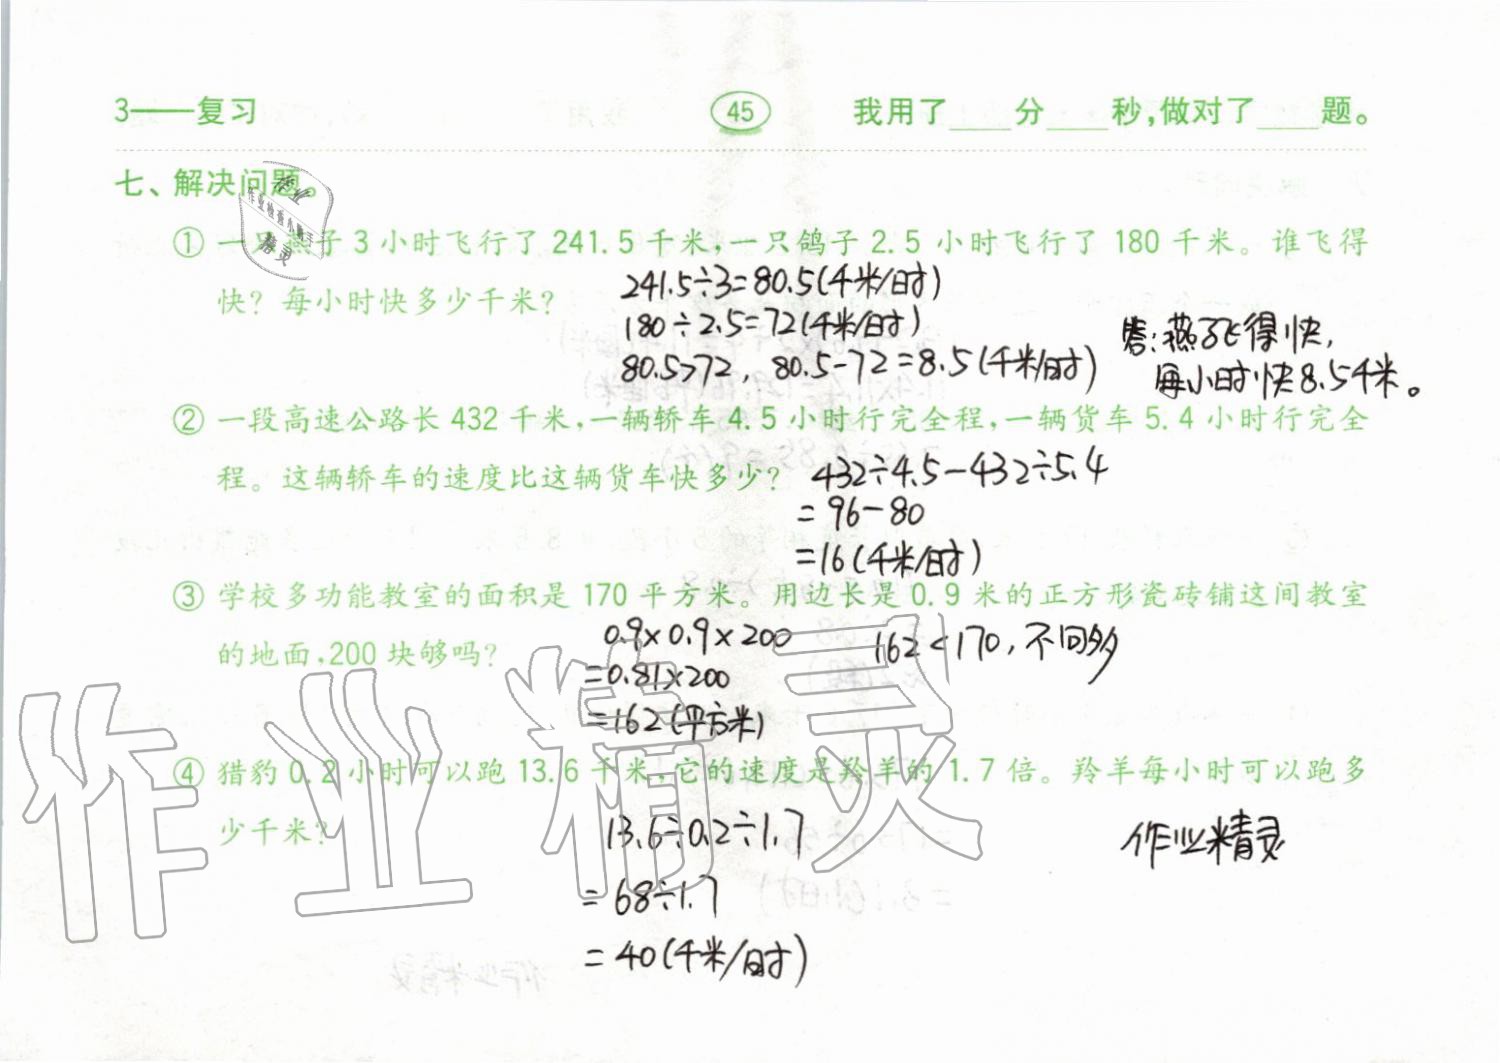 3——复习 45 我用了____分____秒,做对了____题。
七、解决问题。
① 一只燕子 3 小时飞行了 241.5 千米,一只鸽子 2.5 小时飞行了 180 千米。谁飞得
快? 每小时快多少千米?
241.5÷3=80.5(千米/时)
180÷2.5=72(千米/时)
80.5>72, 80.5-72=8.5(千米/时)
答:燕子飞得快,
每小时快8.5千米。
② 一段高速公路长 432 千米,一辆轿车 4.5 小时行完全程,一辆货车 5.4 小时行完全
程。这辆轿车的速度比这辆货车快多少?
432÷4.5-432÷5.4
=96-80
=16(千米/时)
③ 学校多功能教室的面积是 170 平方米。用边长是 0.9 米的正方形瓷砖铺这间教室
的地面,200 块够吗?
0.9×0.9×200
=0.81×200
=162(平方米)
162<170,不同多
④ 猎豹 0.2 小时可以跑 13.6 千米,它的速度是羚羊的 1.7 倍。羚羊每小时可以跑多
少千米?
13.6÷0.2÷1.7
=68÷1.7
=40(千米/时)
作业精灵
作业精灵
作业
作业检查小助手
精灵